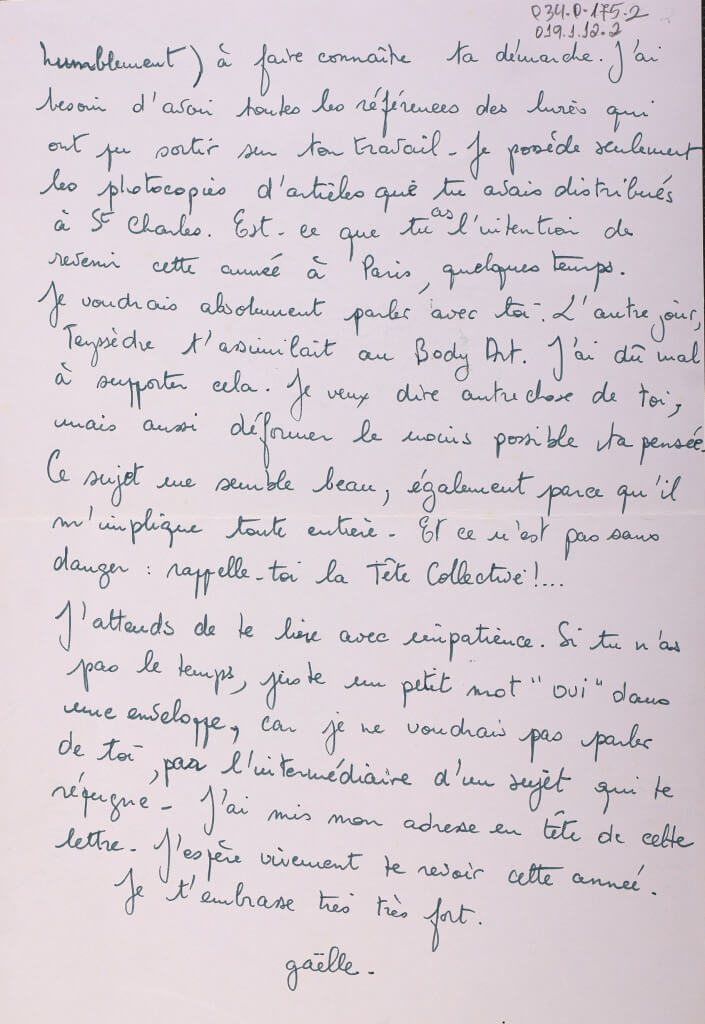 P34.D-175-2
019.1.12.2
humblement) à faire connaître ta démarche. J'ai
besoin d'avoir toutes les références des livres qui
ont pu sortir sur ton travail - Je possède seulement
les photocopies d'articles que tu avais distribués
à St Charles. Est-ce que tu as l'intention de
revenir cette année à Paris, quelques temps.
Je voudrais absolument parler avec toi. L'autre jour,
Teyssèdre t'assimilait au Body Art. J'ai dû mal
à supporter cela. Je veux dire autre chose de toi,
mais aussi déformer le moins possible ta pensée.
Ce sujet me semble beau, également parce qu'il
m'implique toute entière - Et ce n'est pas sans
danger : rappelle-toi la Tête Collective !...
J'attends de te lire avec impatience. Si tu n'as
pas le temps, juste un petit mot "oui" dans
une enveloppe, car je ne voudrais pas parler
de toi, par l'intermédiaire d'un sujet qui te
répugne - J'ai mis mon adresse en tête de cette
lettre - J'espère vivement te revoir cette année.
Je t'embrasse très très fort.
gaëlle -